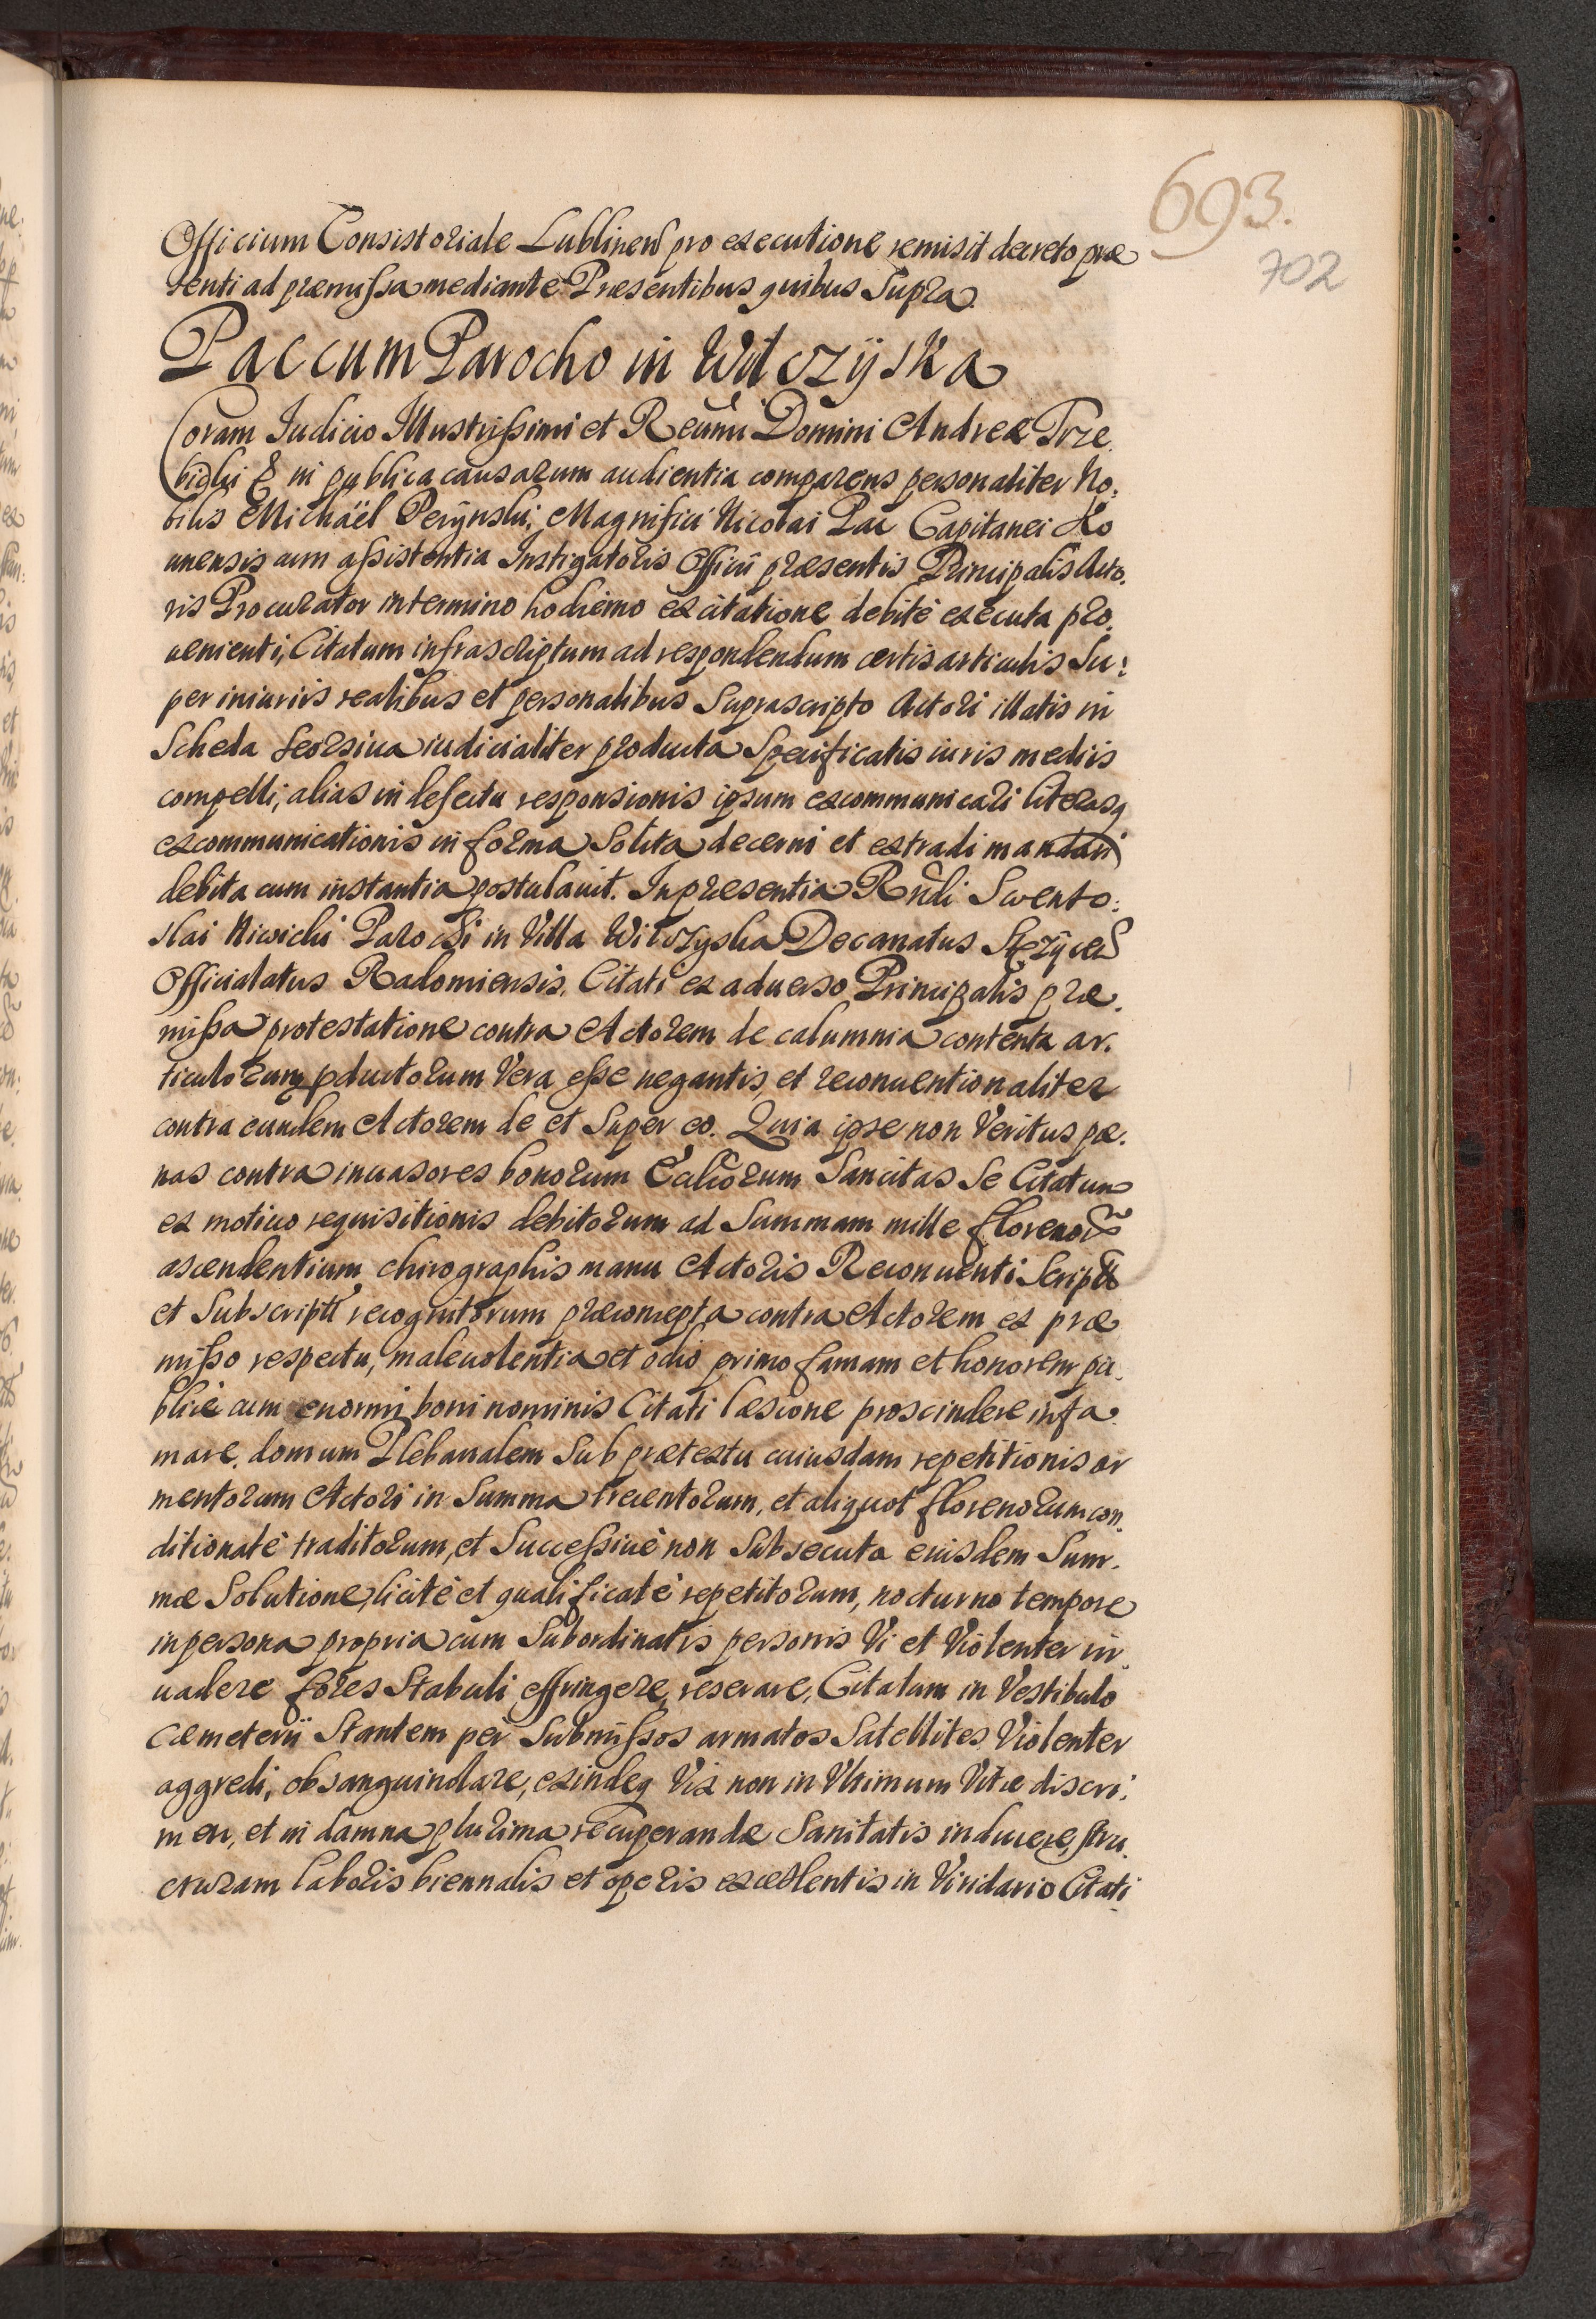 693.
702
Officium Consistoriale Lublinens pro executione remisit decreto præ
senti ad præmissa mediante Præsentibus quibus Supra
Pac cum Parocho in Wilczyska
Coram Iudicio Illustrissimi et Reûmi Domini Andreæ Trze
bicki & in publica causarum audientia comparens personaliter No:
bilis Michäel Perÿnski, Magnifici Nicolai Pac Capitanei Ko
unensis cum assistentia Instigatoris Officii præsentis Principalis Acto.
ris Procurator in termino hodierno ex citatione debitè executa pro.
uenienti, Citatum infrascriptum ad respondendum certis articulis Su:
per iniuriis realibus et personalibus Suprascripto Actori illatis in
Scheda Seorsiua iudicialiter producta Specificatis iuris mediis
compelli, alias in defectu responsionis ipsum excommunicari literasq
excommunicationis in forma Solita decerni et extradi mandari
debita cum instantia postulauit. In præsentia Rndi Swento:
slai Niwicki Parochi in Villa Wilczyska Decanatus Stezÿcens
Officialatus Radomiensis. Citati ex aduerso Principalis præ.
missa protestatione contra Actorem de calumnia contenta ar.
ticulorum pductorum Vera esse negantis, et reconuentionaliter
contra eundem Actorem de et Super eo. Quia ipse non Veritus pæ.
nas contra inuasores bonorum Eccliorum Sancitas Se Citatum
ex motiuo requisitionis debitorum ad Summam mille florenor
ascendentium chirographis manu Actoris Reconuenti Script
et Subscript recognitorum præconcepta contra Actorem ex præ
misso respectu, maleuolentia et odio primo famam et honorem pu.
blicè cum enormi boni nominis Citati læsione proscindere infa.
mare. domum Plebanalem Sub prætextu cuiusdam repetitionis ar
mentorum Actori in Summa trecentorum, et aliquot florenorum con.
ditionatè traditorum, et Successiuè non Subsecuta eiusdem Sum.
mæ Solutione, licitè et qualificatè repetitorum, nocturno tempore
in persona propria cum Subordinatis personis Vi et Violenter in
uadere fores Stabuli effringere, reserare, Citatum in Vestibulo
Cæmeterii Stantem per Submissos armatos Satellites Violenter
aggredi, obsanguinolare, exindeq Vix non in Vltimum Vitæ discri:
men, et in damna plurima recuperandæ Sanitatis inducere, stru.
cturam laboris biennalis et operis excellentis in Viridario Citati